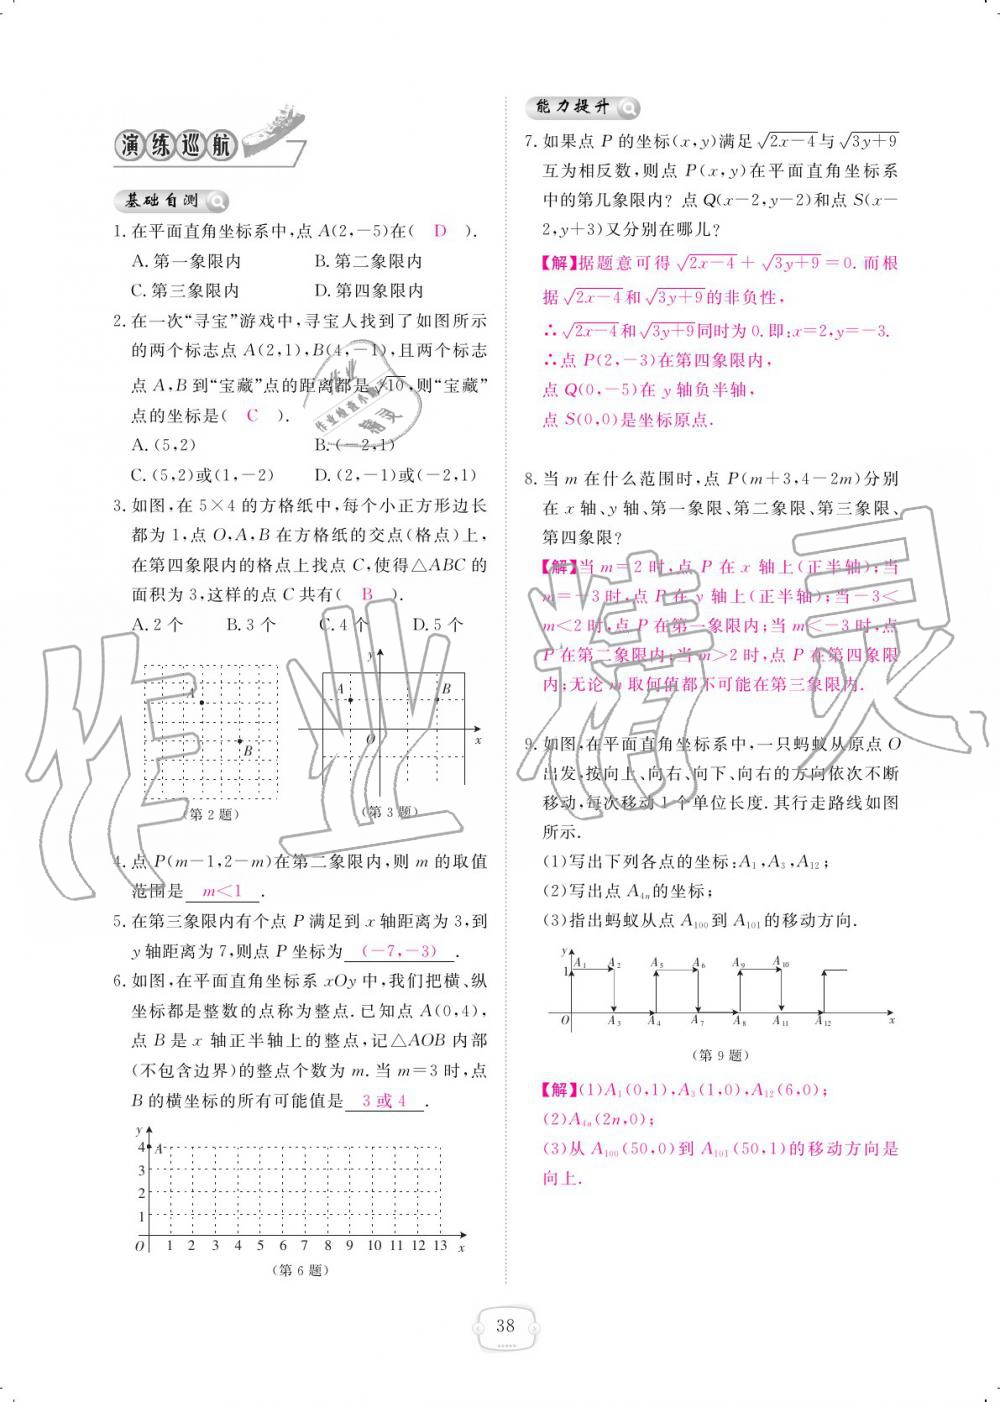 演练巡航
基础自测
1. 在平面直角坐标系中,点 A(2,-5)在( D ).
A. 第一象限内 B. 第二象限内
C. 第三象限内 D. 第四象限内
2. 在一次“寻宝”游戏中,寻宝人找到了如图所示
的两个标志点 A(2,1),B(4,-1),且两个标志
点 A,B 到“宝藏”点的距离都是√10,则“宝藏”
点的坐标是( C ).
A. (5,2) B. (-2,1)
C. (5,2)或(1,-2) D. (2,-1)或(-2,1)
3. 如图,在 5×4 的方格纸中,每个小正方形边长
都为 1,点 O,A,B 在方格纸的交点(格点)上,
在第四象限内的格点上找点 C,使得△ABC 的
面积为 3,这样的点 C 共有( B ).
A. 2 个 B. 3 个 C. 4 个 D. 5 个
A
B
(第 2 题)
y
A
B
O
x
(第 3 题)
4. 点 P(m-1,2-m)在第二象限内,则 m 的取值
范围是 m<1 .
5. 在第三象限内有个点 P 满足到 x 轴距离为 3,到
y 轴距离为 7,则点 P 坐标为 (-7,-3) .
6. 如图,在平面直角坐标系 xOy 中,我们把横、纵
坐标都是整数的点称为整点. 已知点 A(0,4),
点 B 是 x 轴正半轴上的整点,记△AOB 内部
(不包含边界)的整点个数为 m. 当 m=3 时,点
B 的横坐标的所有可能值是 3 或 4 .
y
4 A
3
2
1
O 1 2 3 4 5 6 7 8 9 10 11 12 13 x
(第 6 题)
能力提升
7. 如果点 P 的坐标(x,y)满足√2x-4与√3y+9
互为相反数,则点 P(x,y)在平面直角坐标系
中的第几象限内? 点 Q(x-2,y-2)和点 S(x-
2,y+3)又分别在哪儿?
【解】据题意可得 √2x-4+√3y+9=0. 而根
据√2x-4和√3y+9的非负性,
∴√2x-4和√3y+9同时为 0. 即:x=2,y=-3.
∴点 P(2,-3)在第四象限内,
点 Q(0,-5)在 y 轴负半轴,
点 S(0,0)是坐标原点.
8. 当 m 在什么范围时,点 P(m+3,4-2m)分别
在 x 轴、y 轴、第一象限、第二象限、第三象限、
第四象限?
【解】当 m=2 时,点 P 在 x 轴上(正半轴);当
m=-3 时,点 P 在 y 轴上(正半轴);当-3<
m<2 时,点 P 在第一象限内;当 m<-3 时,点
P 在第二象限内;当 m>2 时,点 P 在第四象限
内;无论 m 取何值都不可能在第三象限内.
9. 如图,在平面直角坐标系中,一只蚂蚁从原点 O
出发,按向上、向右、向下、向右的方向依次不断
移动,每次移动 1 个单位长度. 其行走路线如图
所示.
(1)写出下列各点的坐标:A₁,A₃,A₁₂;
(2)写出点 A₄ₙ的坐标;
(3)指出蚂蚁从点 A₁₀₀到 A₁₀₁的移动方向.
y
1 A₁ A₂ A₅ A₆ A₉ A₁₀
O A₃ A₄ A₇ A₈ A₁₁ A₁₂ x
(第 9 题)
【解】(1)A₁(0,1),A₃(1,0),A₁₂(6,0);
(2)A₄ₙ(2n,0);
(3)从 A₁₀₀(50,0)到 A₁₀₁(50,1)的移动方向是
向上.
38
作业精灵